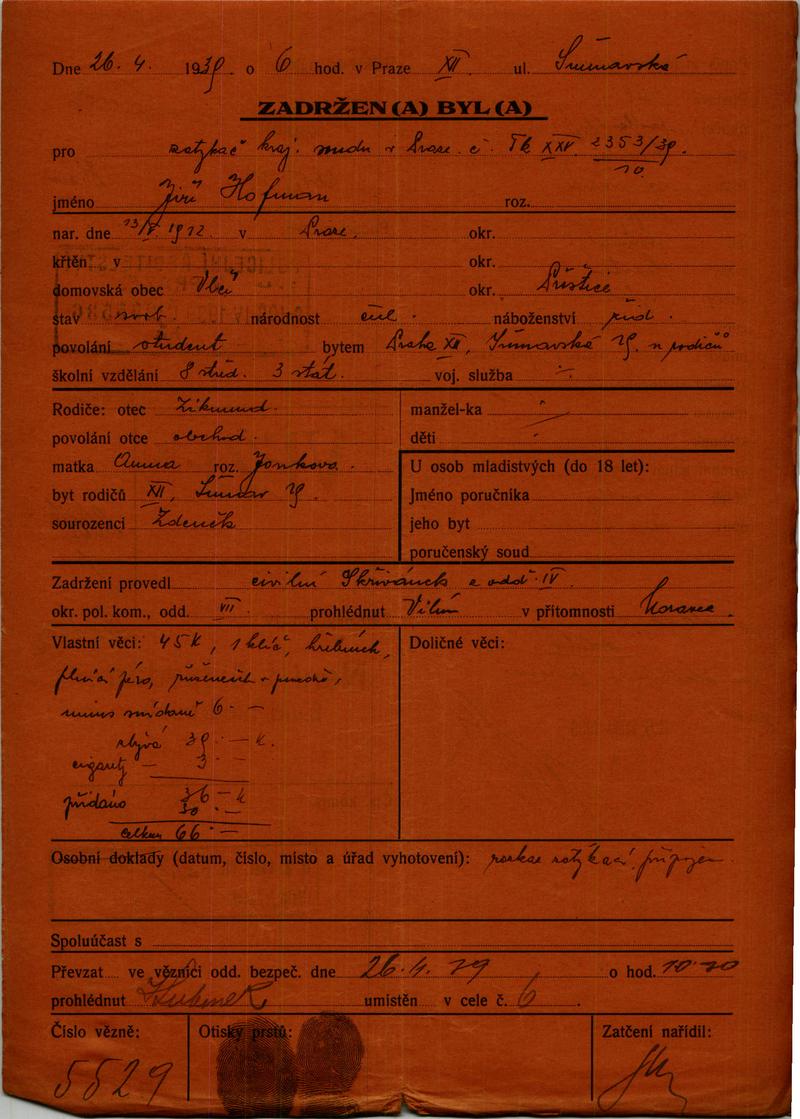 Dne 26. 4. 1939. o 6 hod. v Praze XII. ul. Šumavská
ZADRŽEN(A) BYL(A)
pro zatykač kraj. soudu v Praze. č. Tk XXV 2353/39.
10.
jméno Jiří Hofman roz.
nar. dne 13/V. 1912 v Praze. okr.
křtěn v okr.
domovská obec Vlčí okr. Přeštice
stav svob. národnost čsl. náboženství žid.
povolání student bytem Praha XII, Šumavská 19. u rodičů
školní vzdělání 8 střed. 3 stát. voj. služba ÷
Rodiče: otec Zikmund. manžel-ka
povolání otce obchod. děti
matka Anna roz. Jonkova. U osob mladistvých (do 18 let):
byt rodičů XII, Šumav 19. Jméno poručníka
sourozenci Zdeněk jeho byt
poručenský soud
Zadržení provedl civilní Skřivánek z odd. IV.
okr. pol. kom., odd. VII prohlédnut Vilím v přítomnosti
Vlastní věci: 45 K, 1 klíč, hřebínek, Doličné věci:
plnicí péro,
minus snídaně 6.—
zbývá 39.— K.
cigarety — 3.—
36 — K
přidáno 30.—
celkem 66.—
Osobní doklady (datum, číslo, místo a úřad vyhotovení): rozkaz zatýkací připojen
Spoluúčast s
Převzat ve věznici odd. bezpeč. dne 26. 4. 39 o hod.
prohlédnut umístěn v cele č. 6.
Číslo vězně: Otisky prstů: Zatčení nařídil:
5529